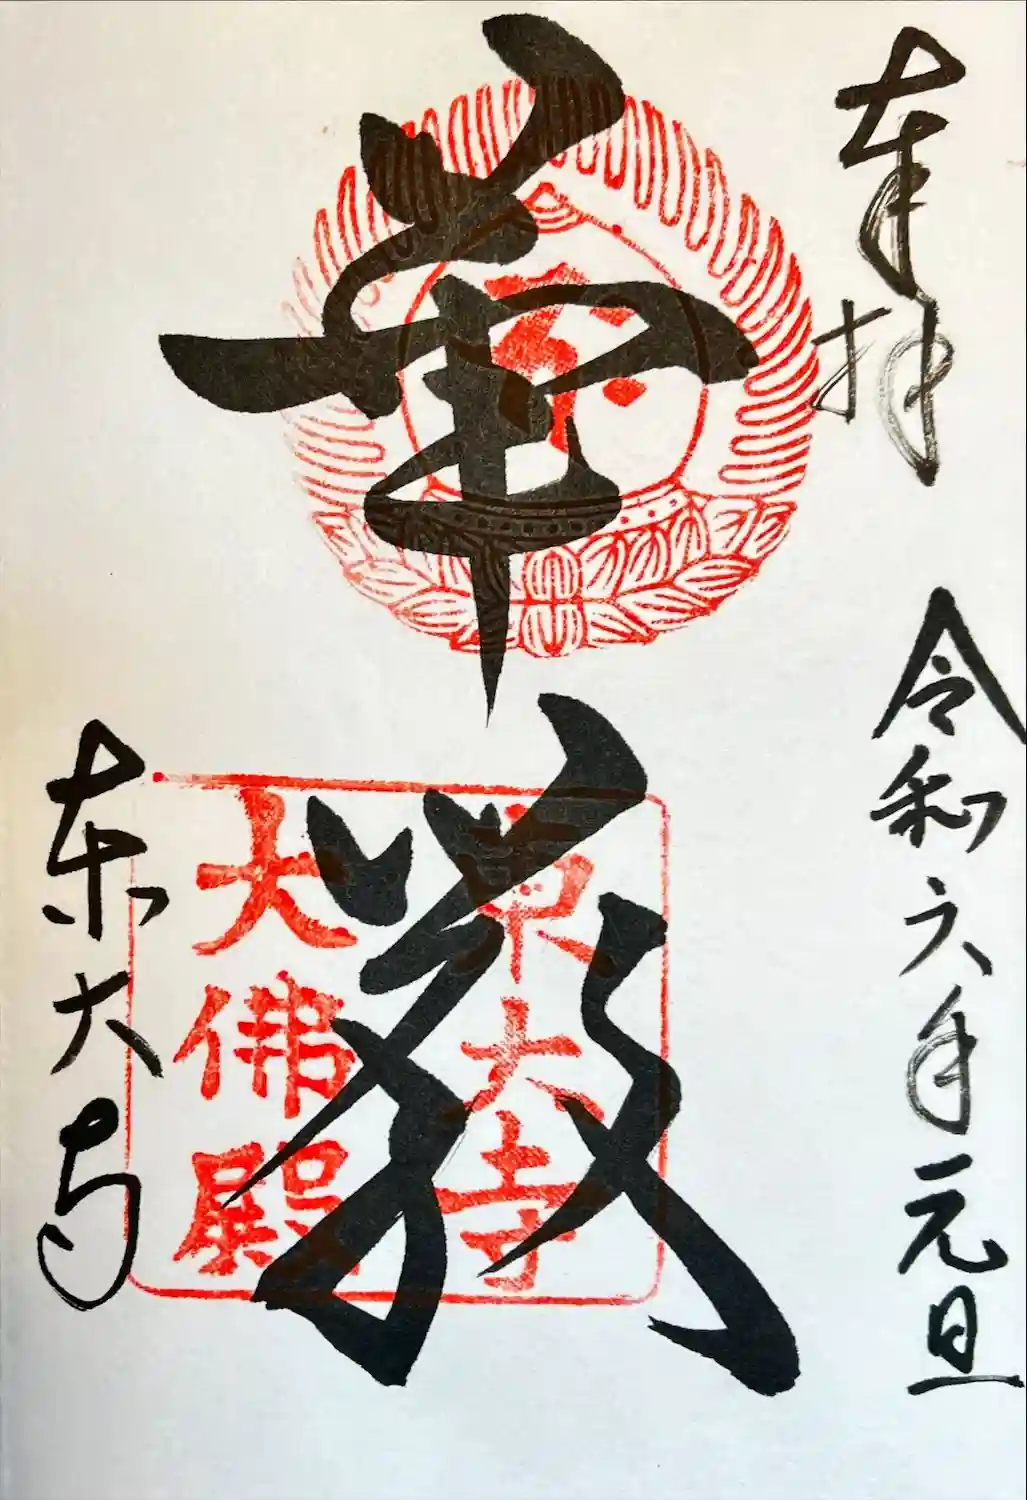 奉拝
令和六年元旦
華嚴
東大寺
大佛殿
東大寺